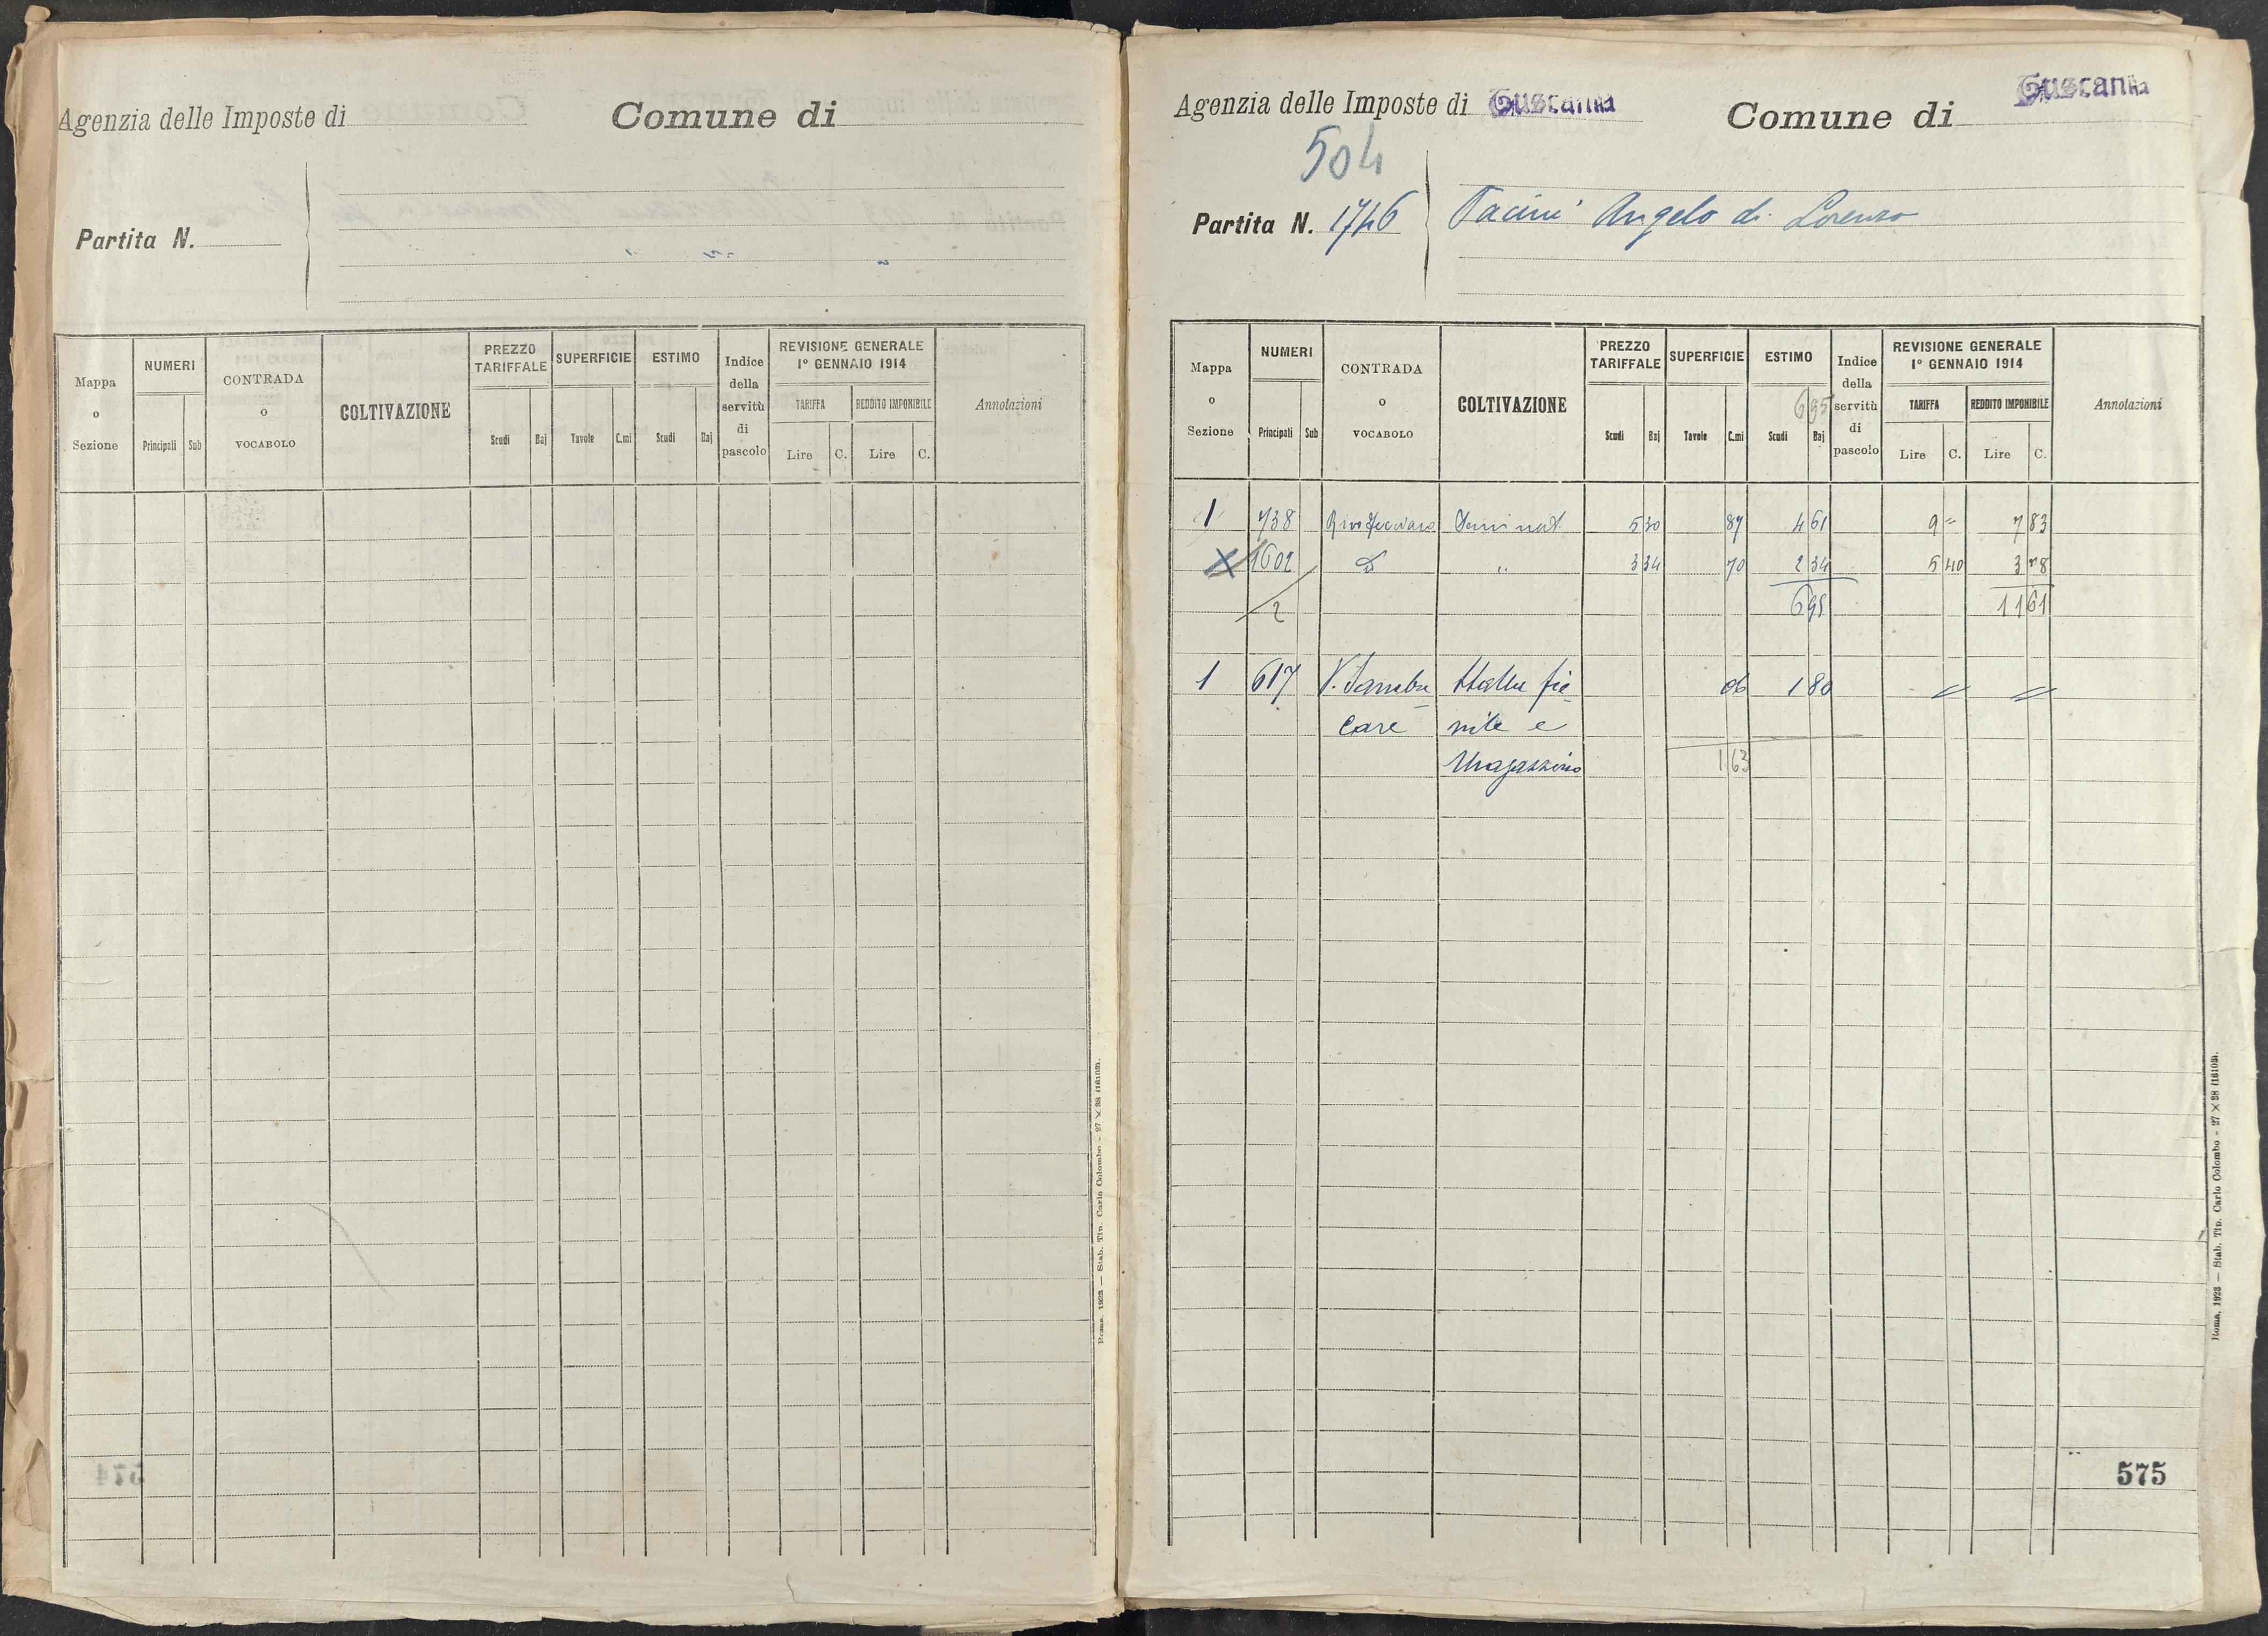 Agenzia delle Imposte di
Comune di
Partita N.
Mappa o Sezione
NUMERI
Principali
Sub
CONTRADA o VOCABOLO
COLTIVAZIONE
PREZZO TARIFFALE
Scudi
Baj
SUPERFICIE
Tavole
C.mi
ESTIMO
Scudi
Baj
Indice della servitù di pascolo
REVISIONE GENERALE
1º GENNAIO 1914
TARIFFA
REDDITO IMPONIBILE
Lire
C.
Lire
C.
Annotazioni
574
Roma, 1923 — Stab. Tip. Carlo Colombo - 27 × 38 (16105).
Agenzia delle Imposte di Tuscania
Comune di Tuscania
504
Partita N. 1746
Angelo di Lorenzo
Mappa o Sezione
NUMERI
Principali
Sub
CONTRADA o VOCABOLO
COLTIVAZIONE
PREZZO TARIFFALE
Scudi
Baj
SUPERFICIE
Tavole
C.mi
ESTIMO
695
Scudi
Baj
Indice della servitù di pascolo
REVISIONE GENERALE
1º GENNAIO 1914
TARIFFA
REDDITO IMPONIBILE
Lire
C.
Lire
C.
Annotazioni
1 738 Seminat. 5 30 87 4 61 9 = 7 83
X 1602 " 3 34 70 2 34 5 40 3 78
2 6 95 11 61
1 617 V. Sambu Stalla fie 06 1 80 = =
care nile e
Magazzino 1 63
575
Roma, 1923 — Stab. Tip. Carlo Colombo - 27 × 38 (16105).